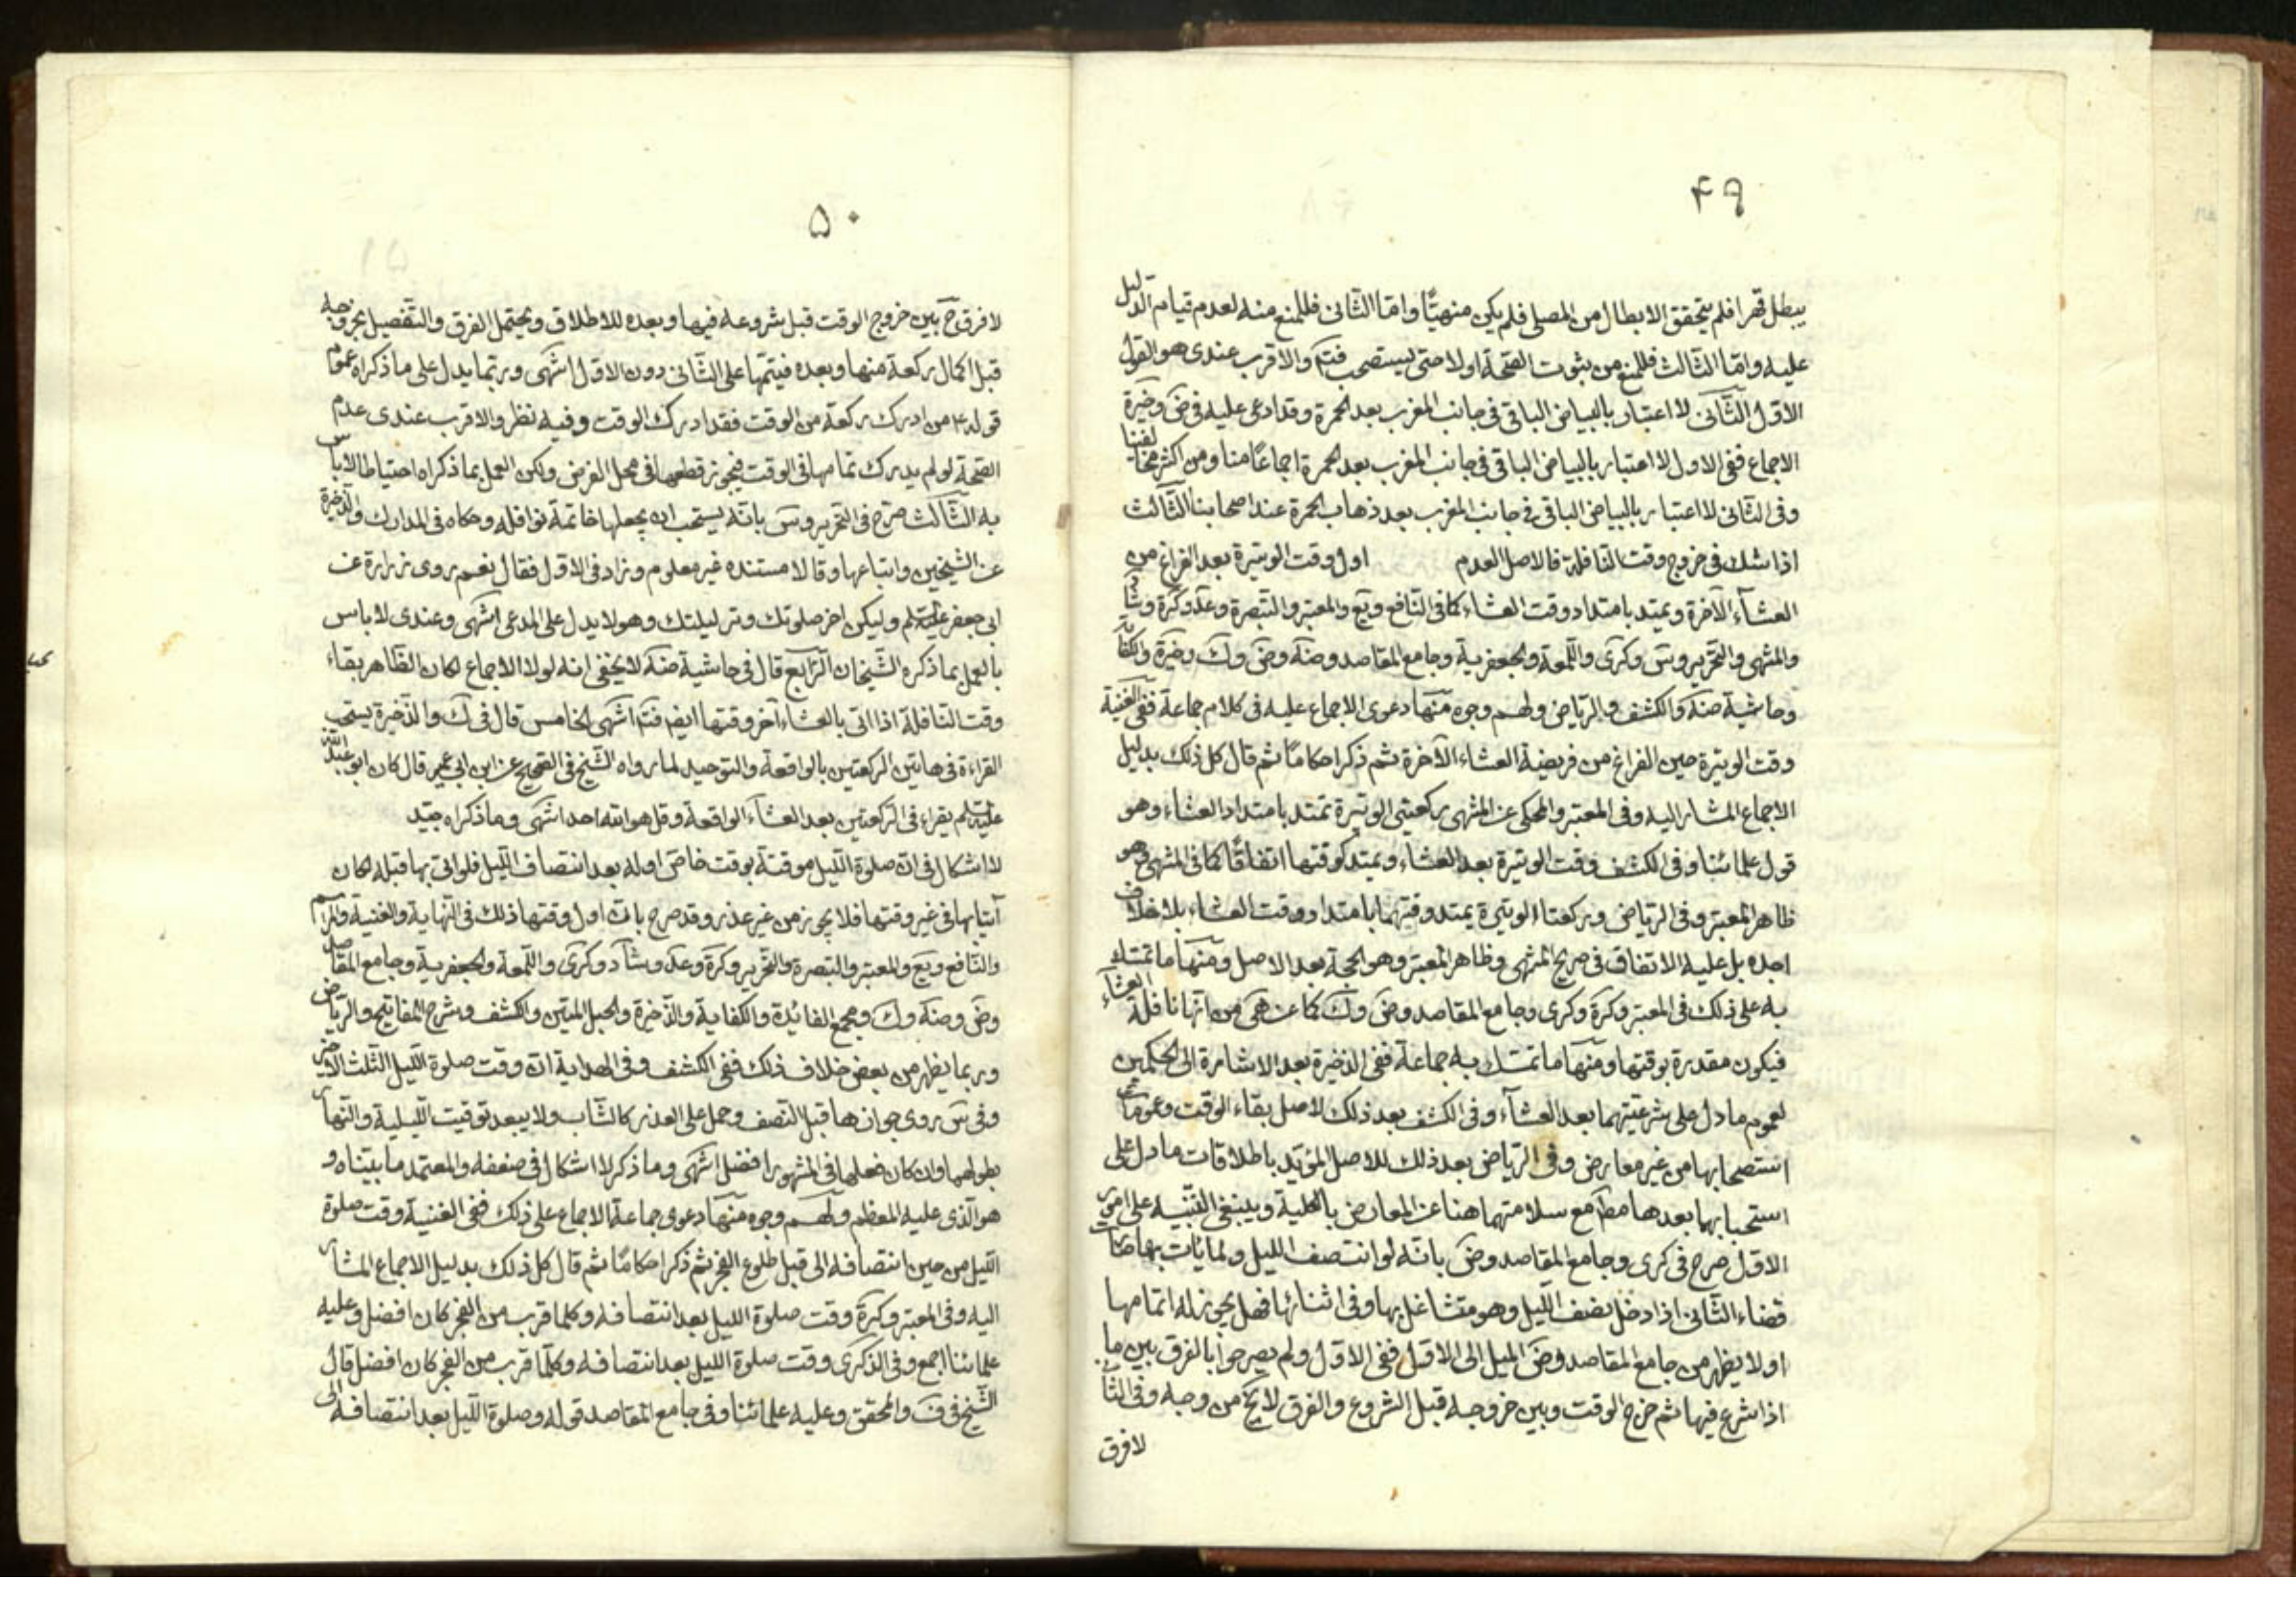 ۴۹
يبطل قهرا فلم يتحقق الابطال من المصلى فلم يكن منهيّا وامّا الثانى فللمنع منه لعدم قيام الدّليل
عليه وامّا الثالث فللمنع من ثبوت الصّحة اولا حتى يستصحب فتم والاقرب عندى هو القول
الاوّل الثّانى لا اعتبار بالبياض الباقى فى جانب المغرب بعد الحمرة وقد ادعى عليه فى ض وخيرة
الاجماع ففى الاول لا اعتبار بالبياض الباقى فى جانب المغرب بعد الحمرة اجماعًا منا ومن اكثر مخالفينا
وفى الثانى لا اعتبار بالبياض الباقى فى جانب المغرب بعد ذهاب الحمرة عند اصحابنا الثّالث
اذا شك فى خروج وقت النافلة فالاصل العدم اول وقت الوتيرة بعد الفراغ من
العشآء الآخرة ويمتد بامتداد وقت العشاء كما فى النّافع ويع والمعتبر والتبصرة وعد وكرة وشاد
والمنتهى والتحرير وس وكرى واللّمعة والجعفرية وجامع المقاصد وضة وض وك وخيرة والكفاية
وحاشية ضة والكشف والرياض ولهم وجوه منها دعوى الاجماع عليه فى كلام جماعة ففى الغنية
وقت الوتيرة حين الفراغ من فريضة العشاء الآخرة ثم ذكر احكامًا ثم قال كل ذلك بدليل
الاجماع المشار اليه وفى المعتبر والمحكى عن المنتهى ركعتى الوتيرة تمتد بامتداد العشاء وهو
قول علمائنا وفى الكشف وقت الوتيرة بعد العشاء ويمتد كوقتها اتفاقًا كما فى المنتهى وهو
ظاهر المعتبر وفى الرياض وركعتا الوتيرة يمتد وقتهما بامتداد وقت العشاء بلا خلاف
اجده بل عليه الاتفاق فى صريح المنتهى وظاهر المعتبر وهو الحجة بعد الاصل ومنها ما تمسّك
به على ذلك فى المعتبر وكرة وكرى وجامع المقاصد وض وك كما عن هى من انّها نافلة العشآء
فيكون مقدرة بوقتها ومنها ما تمسّك به جماعة ففى الذخيرة بعد الاشارة الى الحكمين
لعموم ما دل على شرعيّتهما بعد العشآء وفى الكشف بعد ذلك لاصل بقاء الوقت وعمومات
استصحابها من غير معارض وفى الرياض بعد ذلك للاصل المؤيّد باطلاقات ما دل على
استحبابهما بعدها مطلقا مع سلامتهما هنا عن المعارض بالكلية وينبغى التّنبيه على امور
الاوّل صرح فى كرى وجامع المقاصد وض بانّه لو انتصف الليل ولمّا يأت بها صارت
قضاء الثّانى اذا دخل نصف اللّيل وهو متشاغل بها وفى اثنائها فهل يجوز له اتمامها
او لا يظهر من جامع المقاصد وض الميل الى الاوّل ففى الاوّل ولم يصرحوا بالفرق بين ما
اذا شرع فيها ثم خرج الوقت وبين خروجه قبل الشروع والفرق لا يخ من وجه وفى الثانى
لا فرق
۵۰
لا فرق ح بين خروج الوقت قبل شروعه فيها وبعده للاطلاق ويحتمل الفرق والتّفصيل بخروجه
قبل اكمال ركعة منها وبعده فيتمّها على الثّانى دون الاوّل انتهى وربّما يدل على ما ذكراه عموم
قوله ع من ادرك ركعة من الوقت فقد ادرك الوقت وفيه نظر والاقرب عندى عدم
الصّحة لو لم يدرك تمامها فى الوقت فيجوز قطعها فى محل الفرض ولكن العمل بما ذكراه احتياطا لا باس
به الثّالث صرّح فى التحرير وس بانّه يستحب ان يجعلها خاتمة نوافله وحكاه فى المدارك والذّخيرة
عن الشيخين واتباعهما وقالا مستنده غير معلوم وزاد فى الاوّل فقال نعم روى زرارة عن
ابى جعفر عليه السلم وليكن اخر صلوتك وتر ليلتك وهو لا يدل على المدعى انتهى وعندى لا باس
بالعمل بما ذكره الشّيخان الرّابع قال فى حاشية ضة لا يخفى انه لو لا الاجماع لكان الظّاهر بقاء
وقت النافلة اذا اتى بالعشاء آخر وقتها ايضا فتم انتهى الخامس قال فى ك والذّخيرة يستحب
القراءة فى هاتين الركعتين بالواقعة والتوحيد لما رواه الشّيخ فى الصّحيح عن ابن ابى عمير قال كان ابو عبد اللّه
عليه السلم يقراء فى الرّكعتين بعد العشآء الواقعة وقل هو اللّه احد انتهى وما ذكراه جيّد
لا اشكال فى انّ صلوة اللّيل موقتة بوقت خاصّ اوله بعد انتصاف اللّيل فلو اتى بها قبله لكان
آتيا بها فى غير وقتها فلا يجوز من غير عذر وقد صرح بانّ اول وقتها ذلك فى النّهاية والغنية والمراسم
والنّافع ويع والمعتبر والتبصرة والتحرير وكرة وعد وشاد وكرى واللّمعة والجعفرية وجامع المقاصد
وض وضة وك ومجمع الفائدة والكفاية والذّخيرة والحبل المتين والكشف وشرح المفاتيح والرياض
وربما يظهر من بعض خلاف ذلك ففى الكشف وفى الهداية انّ وقت صلوة اللّيل الثّلث الاخير
وفى س روى جوازها قبل النّصف وحمل على العذر كالشّاب ولا يبعد توقيت اللّيلية والنّهارية
بطولهما وان كان فعلها فى المشهور افضل انتهى وما ذكر لا اشكال فى ضعفه والمعتمد ما بيّناه و
هو الّذى عليه المعظم ولهم وجوه منها دعوى جماعة الاجماع على ذلك ففى الغنية وقت صلوة
اللّيل من حين انتصافه الى قبل طلوع الفجر ثم ذكر احكامًا ثم قال كل ذلك بدليل الاجماع المشار
اليه وفى المعتبر وكرة وقت صلوة الليل بعد انتصافه وكلما قرب من الفجر كان افضل وعليه
علمائنا اجمع وفى الذكرى وقت صلوة الليل بعد انتصافه وكلّما قرب من الفجر كان افضل قال
الشّيخ فى ف والمحقق وعليه علمائنا وفى جامع المقاصد قوله وصلوة اللّيل بعد انتصافه الى